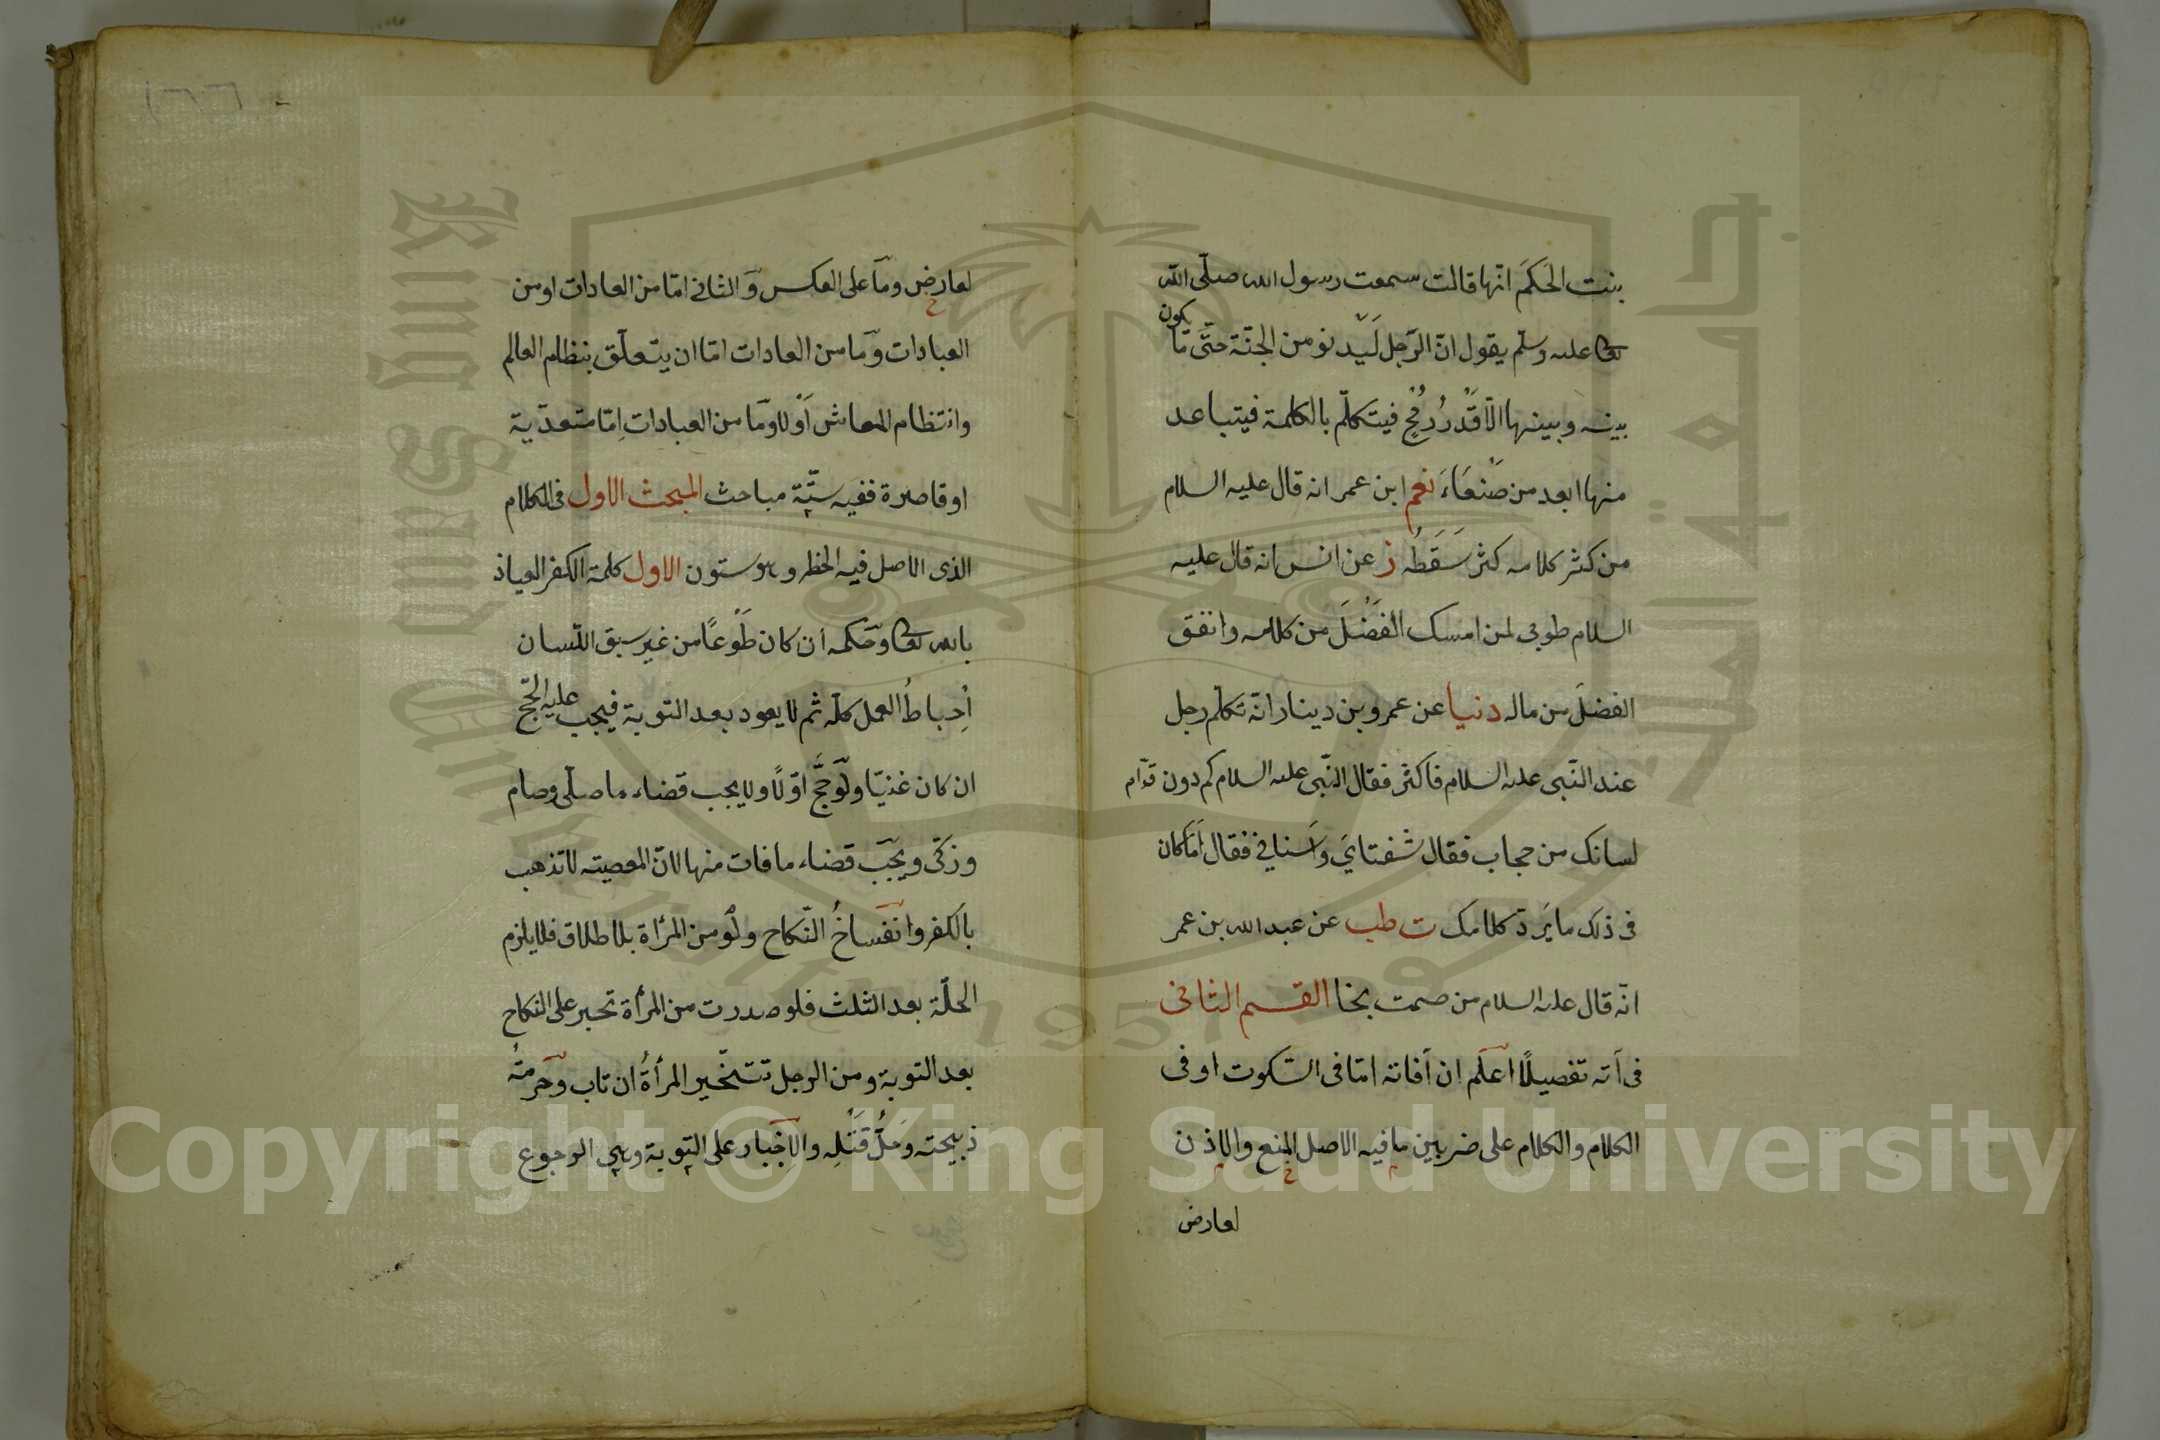 بنت الحَكَم انّها قالت سمعت رسول الله صلّى الله
تعالى عليه وسلّم يقول انّ الرّجل لَيَدنو من الجنّة حتّى ما يكون
بينه وبينها الّا قَدْرُ رُمْحٍ فيتكلّم بالكلمة فيتباعد
منها ابعد من صَنْعَاءَ نعم ابن عمر انه قال عليه السلام
من كثر كلامه كثر سَقَطُه ز عن انس انه قال عليه
السلام طوبى لمن امسك الفَضْلَ من كلامه وانفق
الفضلَ من ماله دنيا عن عمرو بن دينار انّه تكلّم رجل
عند النّبى عليه السلام فاكثر فقال النّبى عليه السلام كم دون قدّام
لسانك من حجاب فقال شفتايَ وَاَسنانى فقال اَمَا كان
فى ذلك ما يَردّ كلامك ت طب عن عبد الله بن عمر
انّه قال عليه السلام من صمت نجا القسم الثانى
فى آفاته تفصيلًا اعلم ان آفاته امّا فى السّكوت او فى
الكلام والكلام على ضربين ما فيه الاصل المنع والاذن
لعارض
لعارض وما على العكس والثانى امّا من العادات او من
العبادات وما من العادات امّا ان يتعلّق بنظام العالم
وانتظام المعاش اَوْ لا وما من العبادات اِمّا متعدّية
او قاصرة ففيه ستّة مباحث المبحث الاول فى الكلام
الذى الاصل فيه الحظر وهو ستون الاول كلمة الكفر العياذ
بالله تعالى وحكمه ان كان طَوْعًا من غير سبق اللّسان
اِحباطُ العمل كلّه ثم لا يعود بعد التوبة فيجب عليه الحجّ
ان كان غنيّا ولو حجّ اوّلًا ولا يجب قضاء ما صلّى وصام
وزكّى ويجب قضاء ما فات منها لانّ المعصية لا تذهب
بالكفر وانفساخُ النّكاح ولو من المرأة بلا طلاق فلا يلزم
الحلّة بعد الثلث فلو صدرت من المرأة تجبر على النكاح
بعد التوبة ومن الرجل تتخيّر المرأةُ ان تاب وحرمةُ
ذبيحته وحلُّ قَتْلِه والاِجْبار على التّوبة وهى الرجوع
Copyright © King Saud University
King Saud University
جامعة الملك سعود
1957